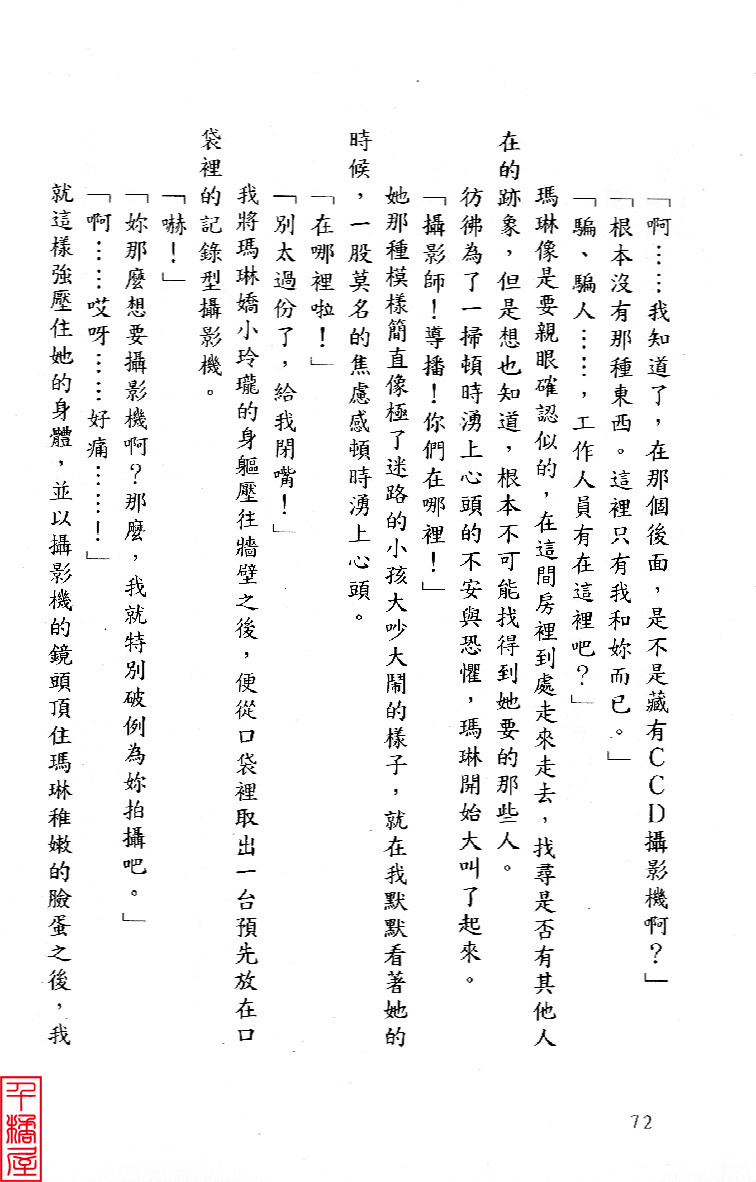 「啊……我知道了，在那個後面，是不是藏有ＣＣＤ攝影機啊？」
「根本沒有那種東西。這裡只有我和妳而已。」
「騙、騙人……，工作人員有在這裡吧？」
瑪琳像是要親眼確認似的，在這間房裡到處走來走去，找尋是否有其他人
在的跡象，但是想也知道，根本不可能找得到她要的那些人。
彷彿為了一掃頓時湧上心頭的不安與恐懼，瑪琳開始大叫了起來。
「攝影師！導播！你們在哪裡！」
她那種模樣簡直像極了迷路的小孩大吵大鬧的樣子，就在我默默看著她的
時候，一股莫名的焦慮感頓時湧上心頭。
「在哪裡啦！」
「別太過份了，給我閉嘴！」
我將瑪琳嬌小玲瓏的身軀壓往牆壁之後，便從口袋裡取出一台預先放在口
袋裡的記錄型攝影機。
「嚇！」
「妳那麼想要攝影機啊？那麼，我就特別破例為妳拍攝吧。」
「啊……哎呀……好痛……！」
就這樣強壓住她的身體，並以攝影機的鏡頭頂住瑪琳稚嫩的臉蛋之後，我
72
千橘屋